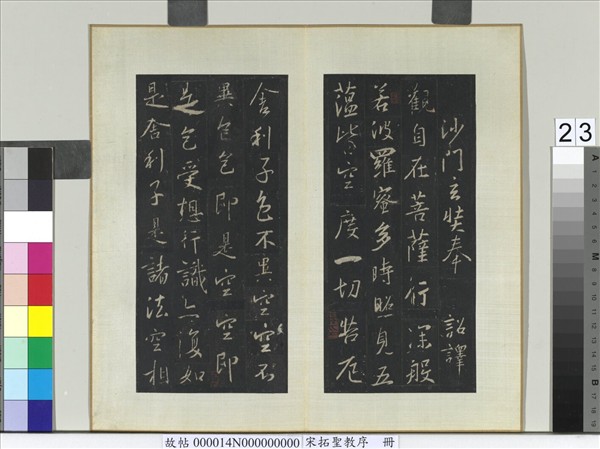 沙門玄奘奉 詔譯
觀自在菩薩行深般
若波羅蜜多時照見五
蘊皆空度一切苦厄
舍利子色不異空空不
異色色即是空空即
是色受想行識亦復如
是舍利子是諸法空相
23
故帖 000014N000000000 宋拓聖教序 冊